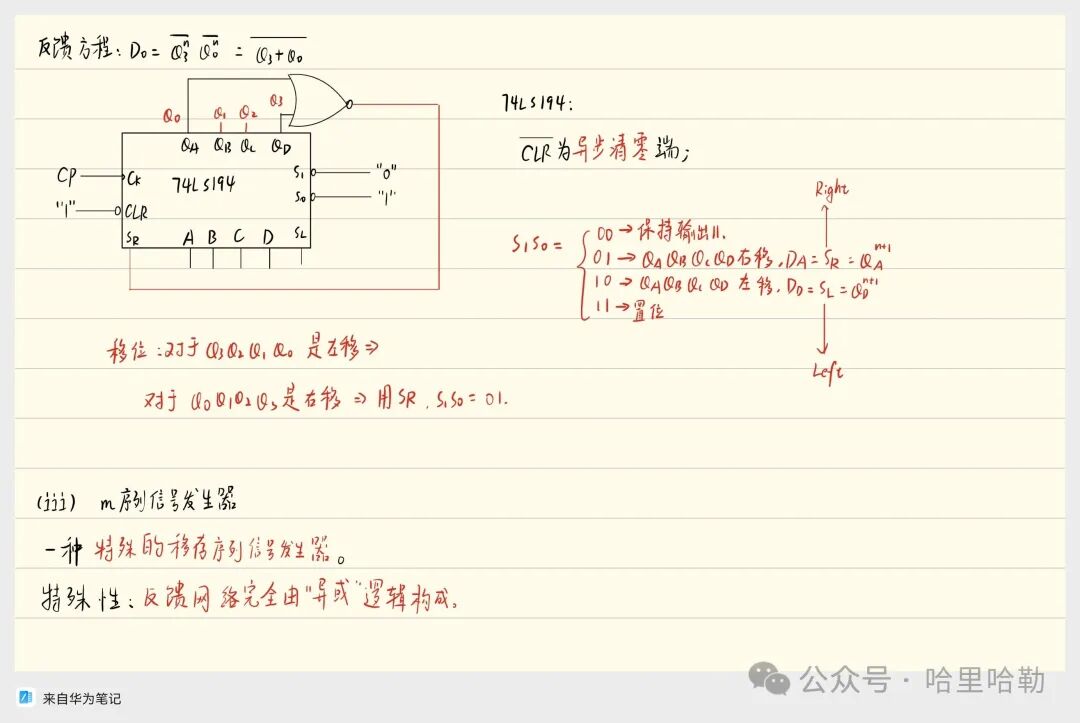 反馈方程: D₀ = \overline{Q₃ⁿ} \overline{Q₀ⁿ} = \overline{Q₃+Q₀}
Q₀ Q₁ Q₂ Q₃
QA QB QC QD
CP CK 74LS194 S₁ "0"
S₀ "1"
"1" CLR
SR A B C D SL
74LS194:
\overline{CLR}为异步清零端;
Right
S₁S₀ =
00→保持输出
01→QAQBQCQD右移, DA=SR=QAⁿ⁺¹
10→QAQBQCQD左移, DD=SL=QDⁿ⁺¹
11→置位
Left
移位:对于Q₃Q₂Q₁Q₀是左移⇒
对于Q₀Q₁Q₂Q₃是右移⇒用SR, S₁S₀=01.
(iii) m序列信号发生器
一种特殊的移存序列信号发生器。
特殊性:反馈网络完全由"异或"逻辑构成。
来自华为笔记
公众号·哈里哈勒